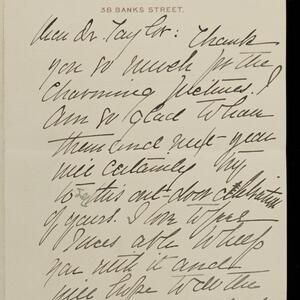 38 BANKS STREET.
Dear Dr. Taylor: Thank
you so much for the
charming pictures. I
am so glad to have
them and next year
will certainly try
to see this out-door celebration
of yours. I am
able to help
you with it and
will hope to the